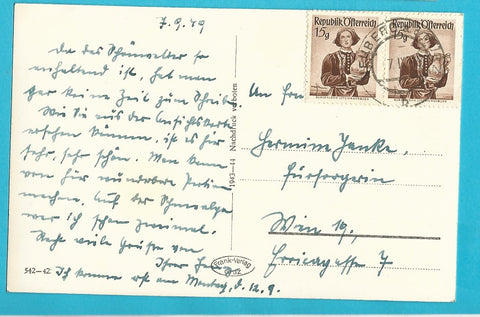 7.9.49
Da das Schönwetter so
anhaltend ist, hat man
gar keine Zeit zum Schreiben.
Wie Sie aus der Ansichtskarte
ersehen können, ist es hier
sehr, sehr schön. Man kann
von hier wunderbare Partien
machen. Auf der Schneealpe
war ich schon zweimal.
Recht viele Grüße von
Ihrer
Ich komme erst am Montag, d. 12.9.
542-42
1943-44 Nachdruck verboten
Frank-Verlag
Graz
Republik Österreich
15g
Republik Österreich
15g
An Frau
Hermine Janke,
Fürsorgerin
Wien 19,
Ericagasse 7